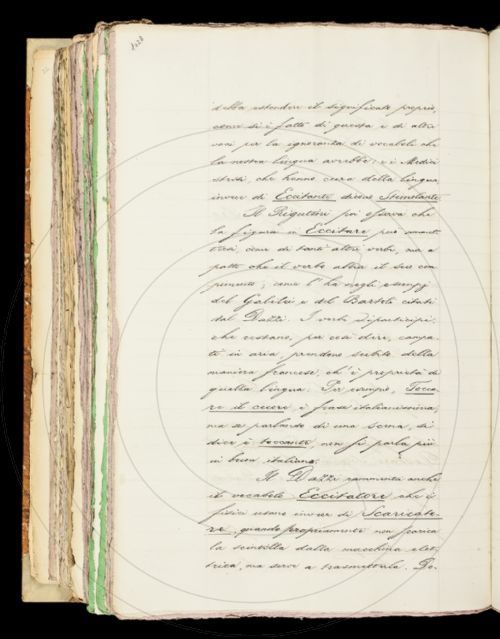 1028
della estendere il significato proprio,
come si è fatto di questa e di altre
voci per la ignoranza di vocaboli che
la nostra lingua avrebbe: e i Medici
stessi, che hanno cura della lingua,
invece di Eccitante dicono Stimolante.
Il Rigutini poi osserva che
la figura in Eccitare può
come di tanti altri verbi, ma a
patto che il verbo abbia il suo com
pimento; come l' ha negli esempj
del Galilei e del Bartoli citati
dal Dazzi. I verbi o participi,
che restano, per così dire, campa-
ti in aria, prendono subito della
maniera francese, ch' è proprietà di
quella lingua. Per esempio, Tocca-
re il cuore, è frase italianissima,
ma se parlando di una scena, si
dice è toccante, non si parla più
in buon italiano.
Il Dazzi rammenta anche
il vocabolo Eccitatore che i
fisici usano invece di Scaricato-
re, quando propriamente non scarica
la scintilla dalla macchina elet-
trica, ma serve a trasmetterla. Do-